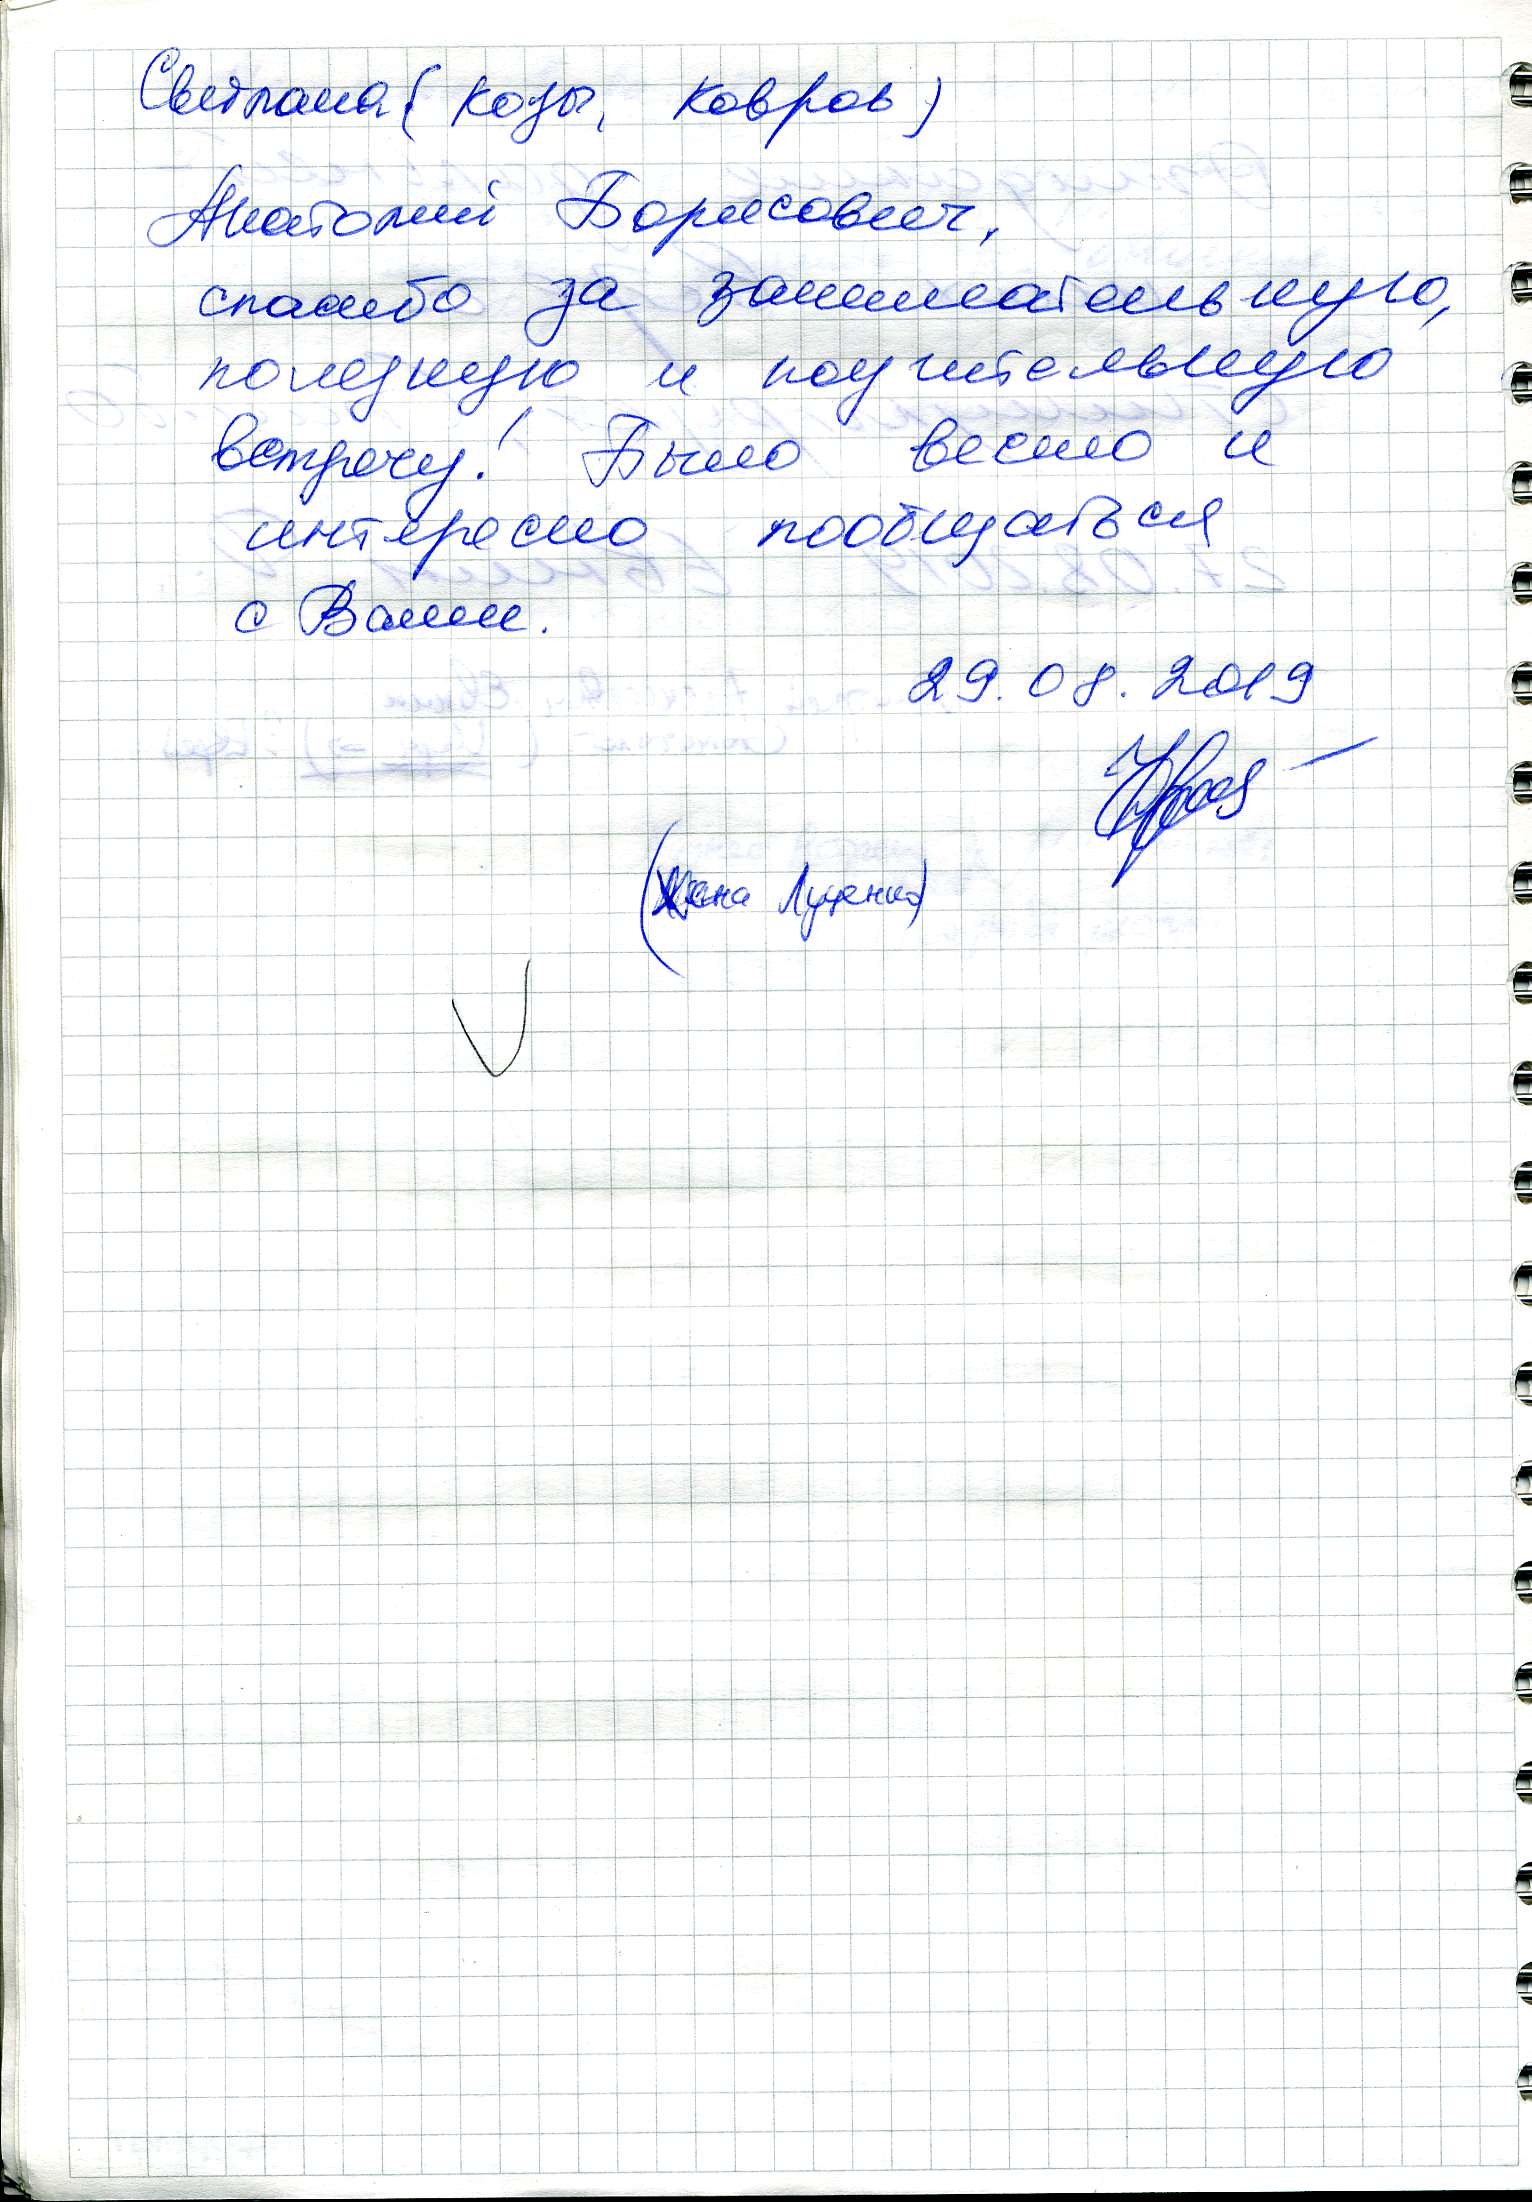 Светлана (козы, Ковров)
Анатолий Борисович,
спасибо за занимательную,
полезную и поучительную
встречу! Было весело и
интересно пообщаться
с Вами.
29.08.2019
(жена Луценко)